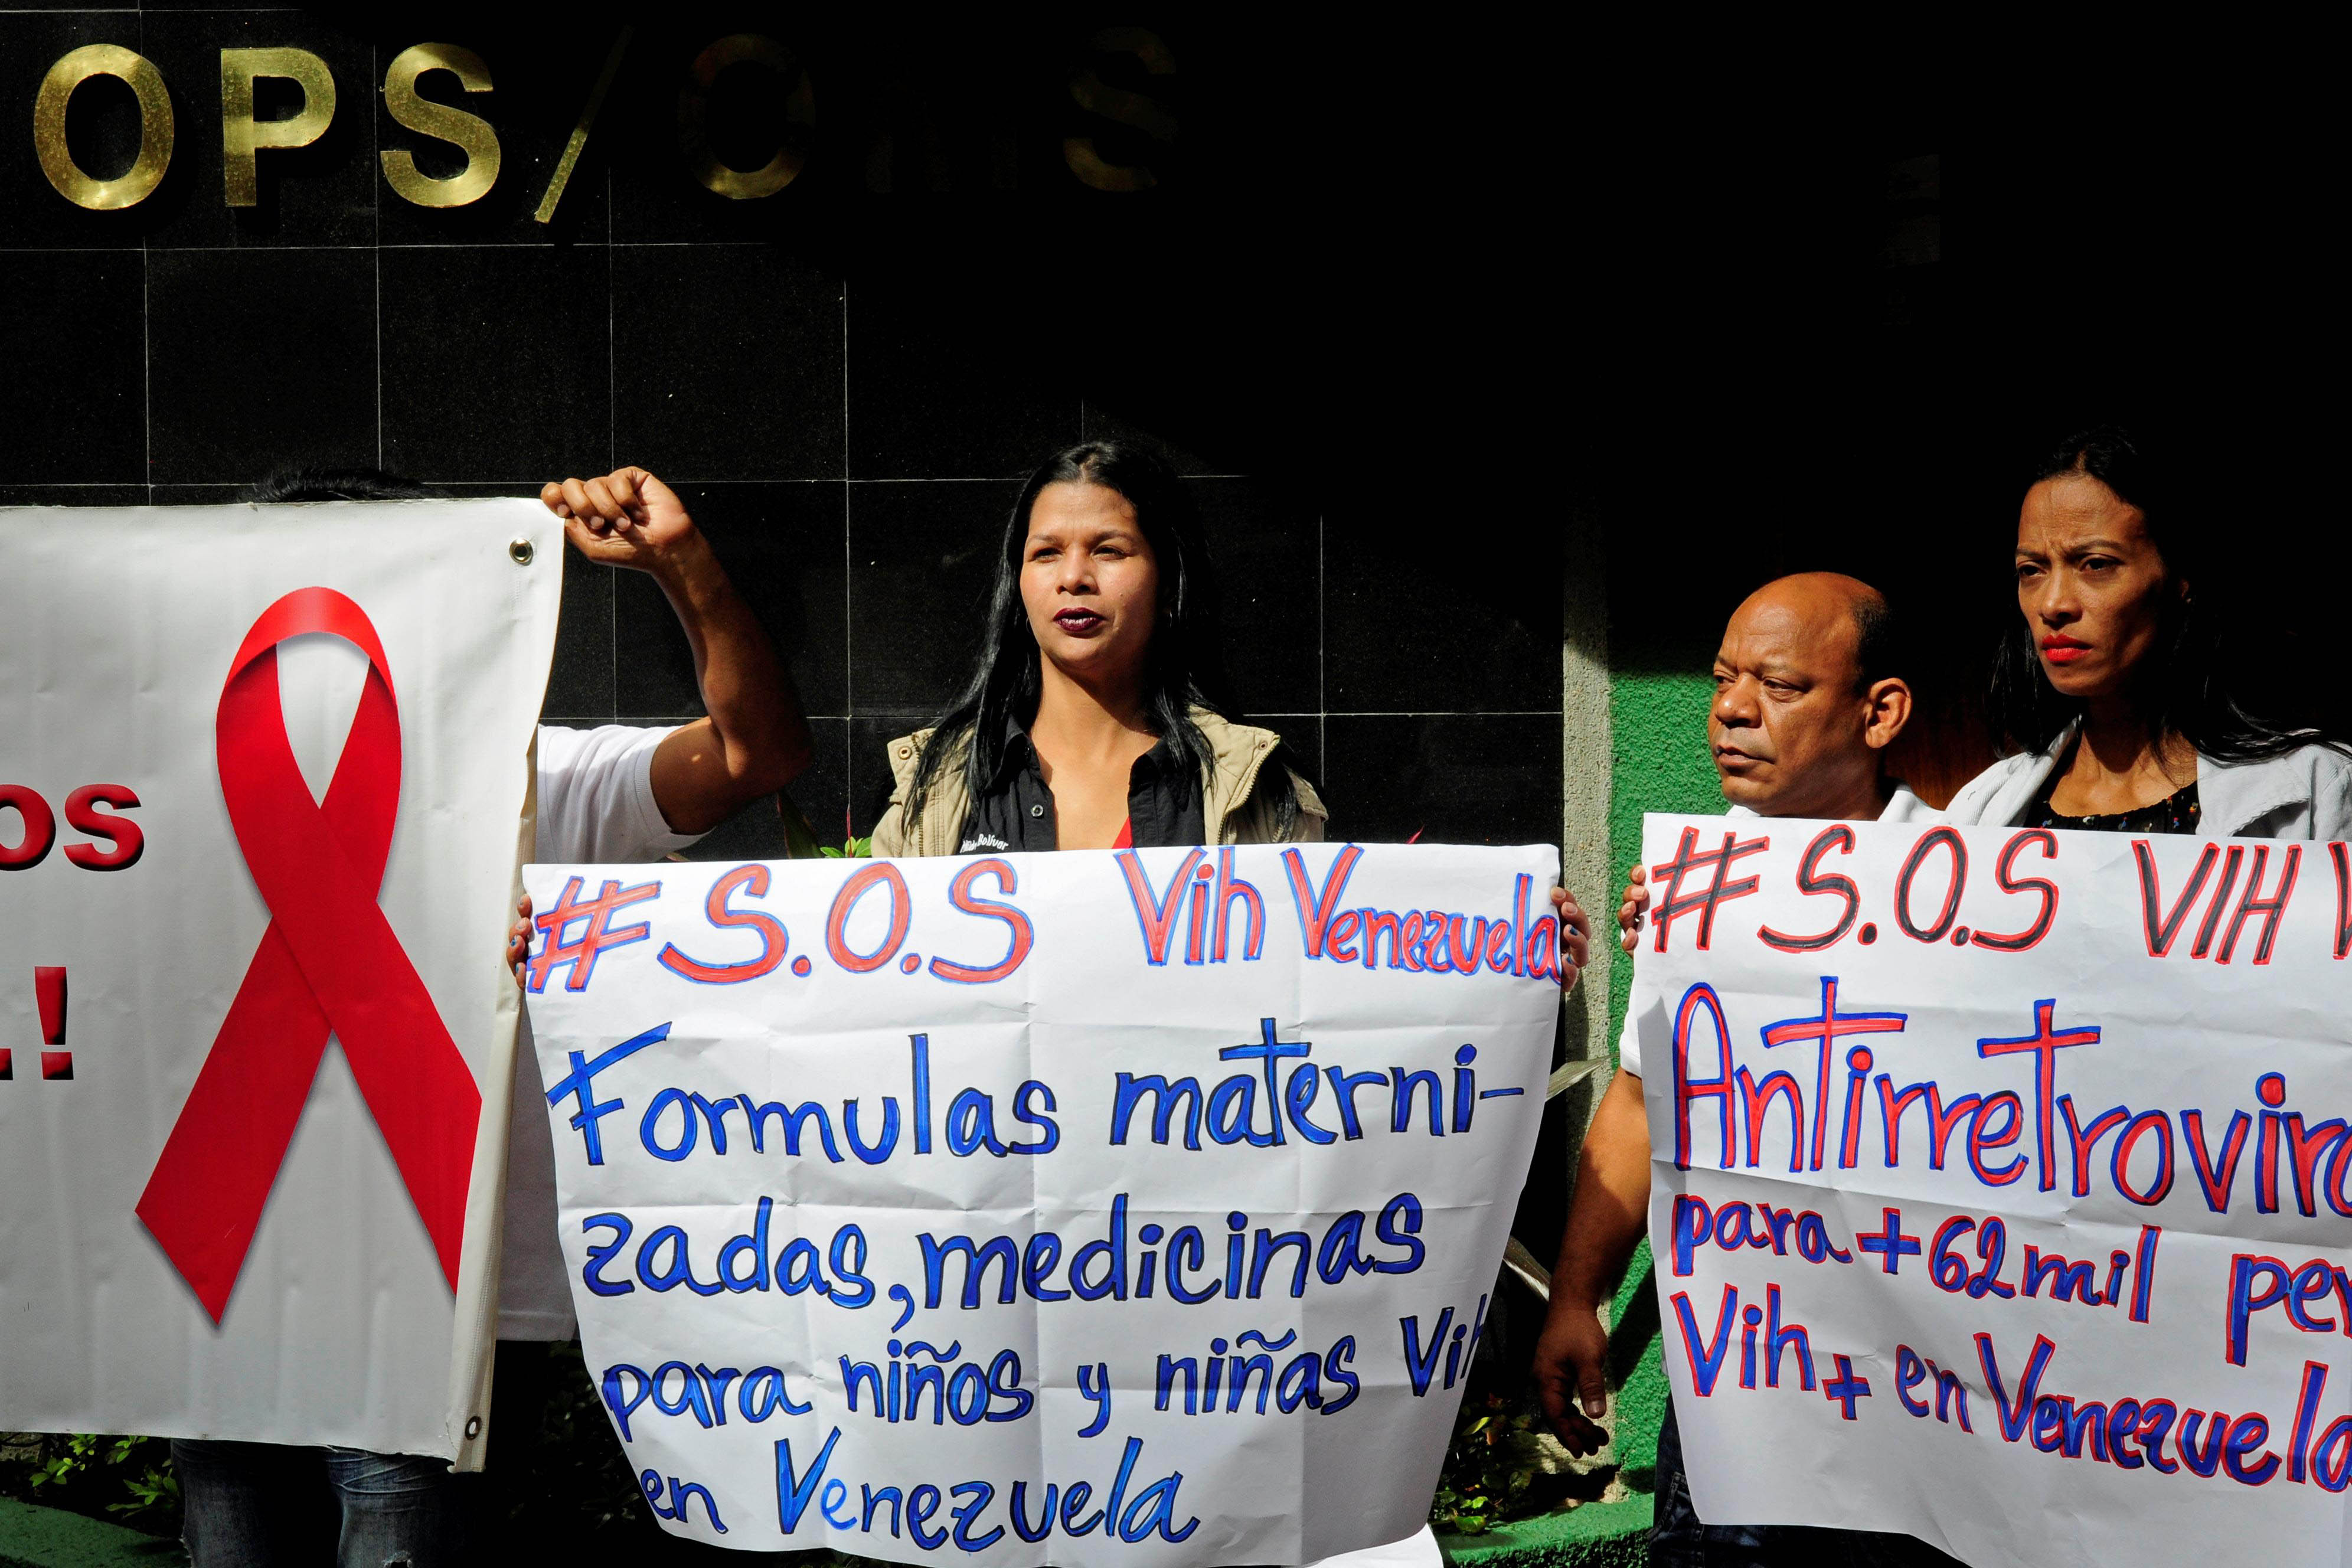 OPS/OMS
os
!
#S.O.S Vih Venezuela
Formulas materni-
zadas, medicinas
para niños y niñas Vih
en Venezuela
#S.O.S VIH
Antirretrovira
para +62mil
Vih+ en Venezuela
Bolívar